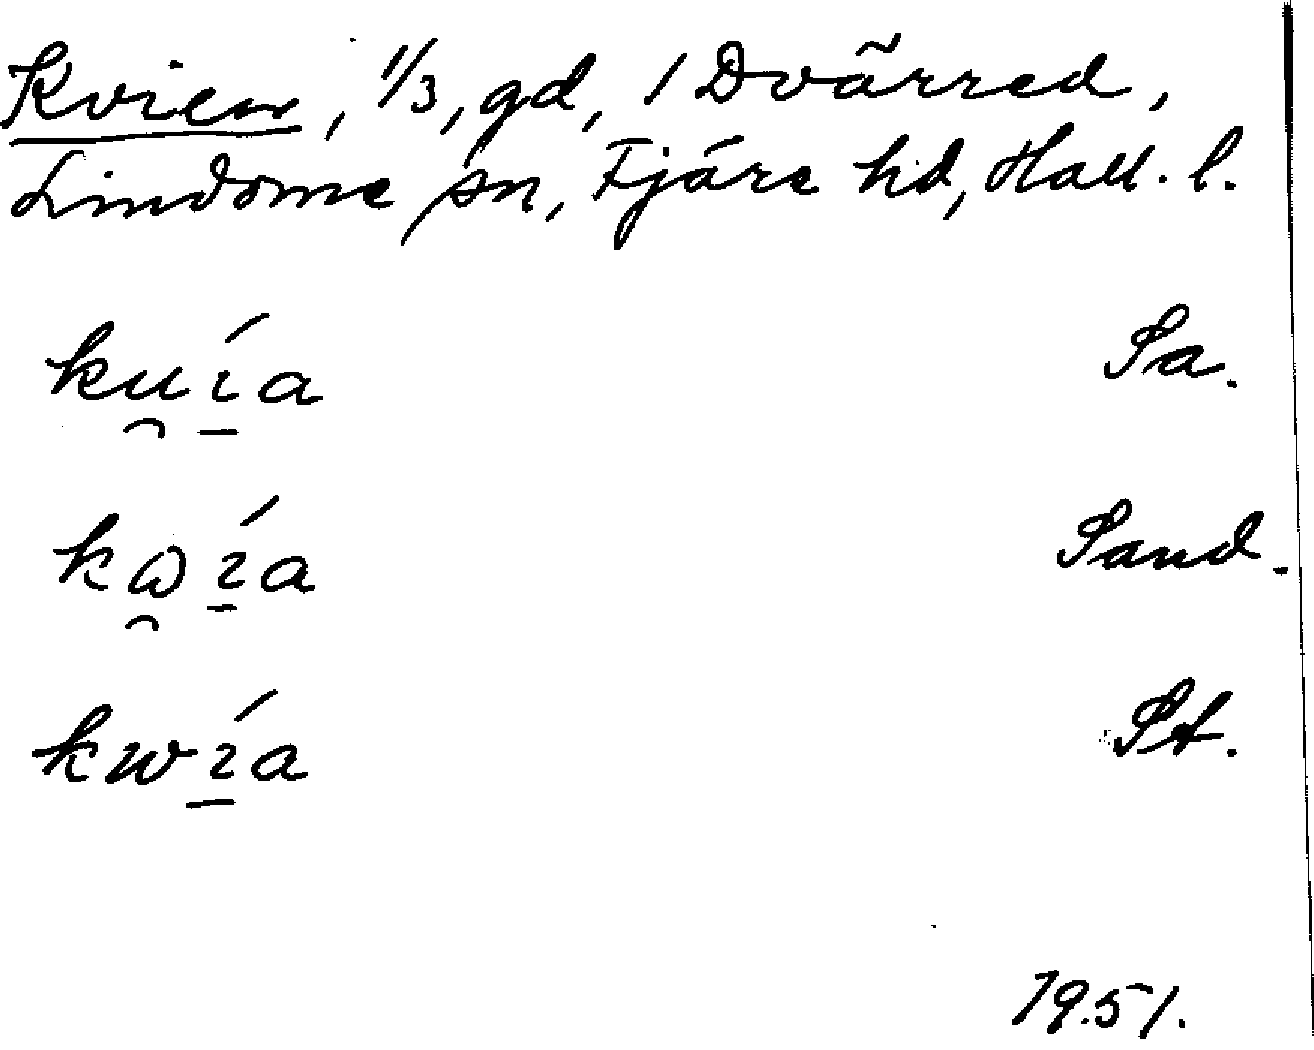 Kvien, 1/3, gd, 1 Dvärred,
Lindome sn, Fjäre hd, Hall. l.
ku̯ɩ̲́a Sa.
kɷ̯ɩ̲́a Sand.
kwɩ̲́a St.
1951.